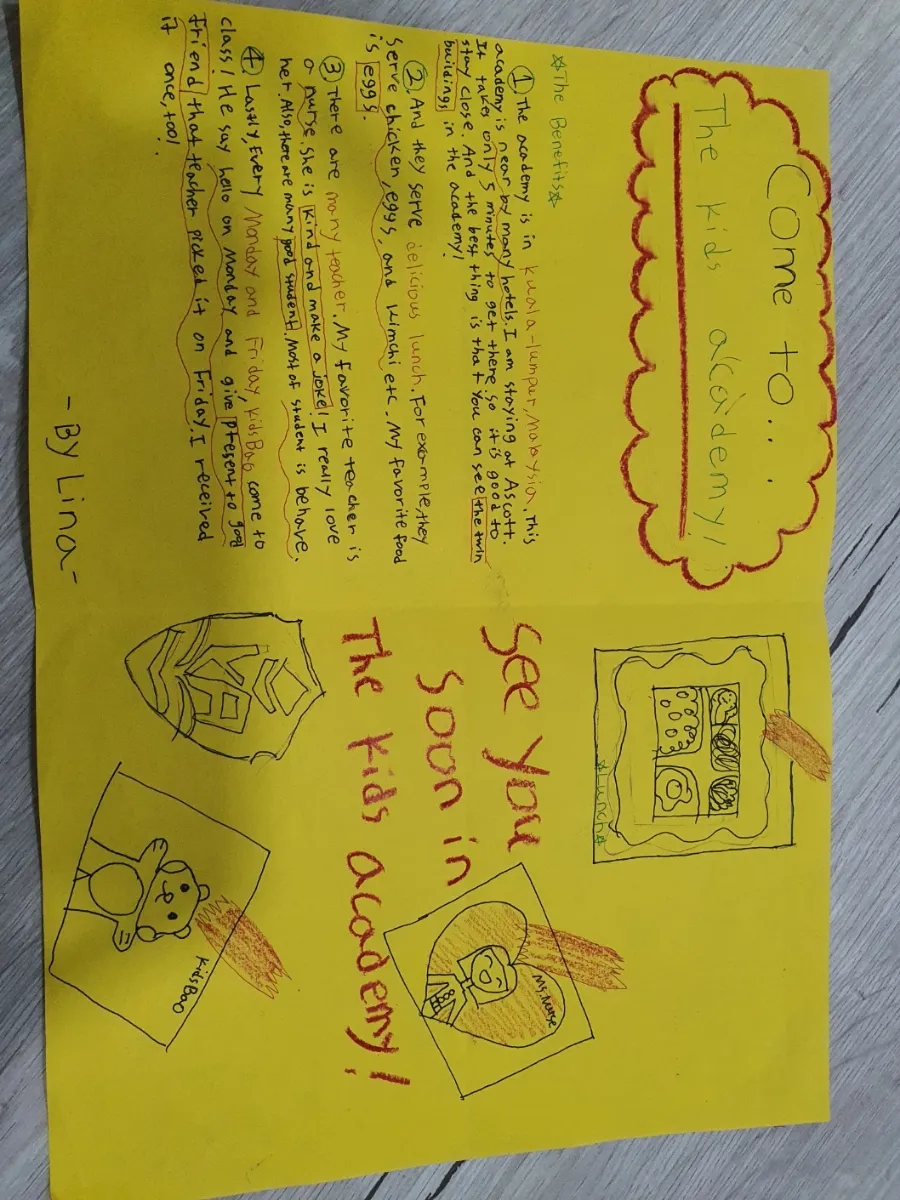 Come to...
The kids academy!
☆The Benefits☆
① The academy is in kuala-lumpur, Malaysia. This
academy is near by many hotels. I am staying at Ascott.
It takes only 5 minutes to get there so it is good to
stay close. And the best thing is that you can see the twin
buildings in the academy!
② And they serve delicious lunch. For example, they
serve chicken, eggs, and kimchi etc. My favorite food
is eggs.
③ There are many teacher. My favorite teacher is
a nurse. She is kind and make a joke! I really love
her. Also, there are many good student. Most of student is behave.
④ Lastly, Every Monday and Friday, kidsBao come to
class! He say hello on Monday and give present to good
friend that teacher picked it on Friday. I received
it once, too!
- By Lina -
☆Lunch☆
See you
soon in
The kids academy!
Ms. Nurse
KidsBao